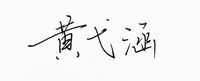 黄弋涵